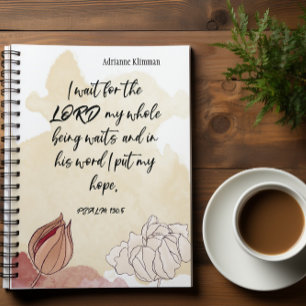 Adrianne Klimman
I wait for the
LORD my whole
being waits and in
his word I put my
hope,
PSALM 130:5